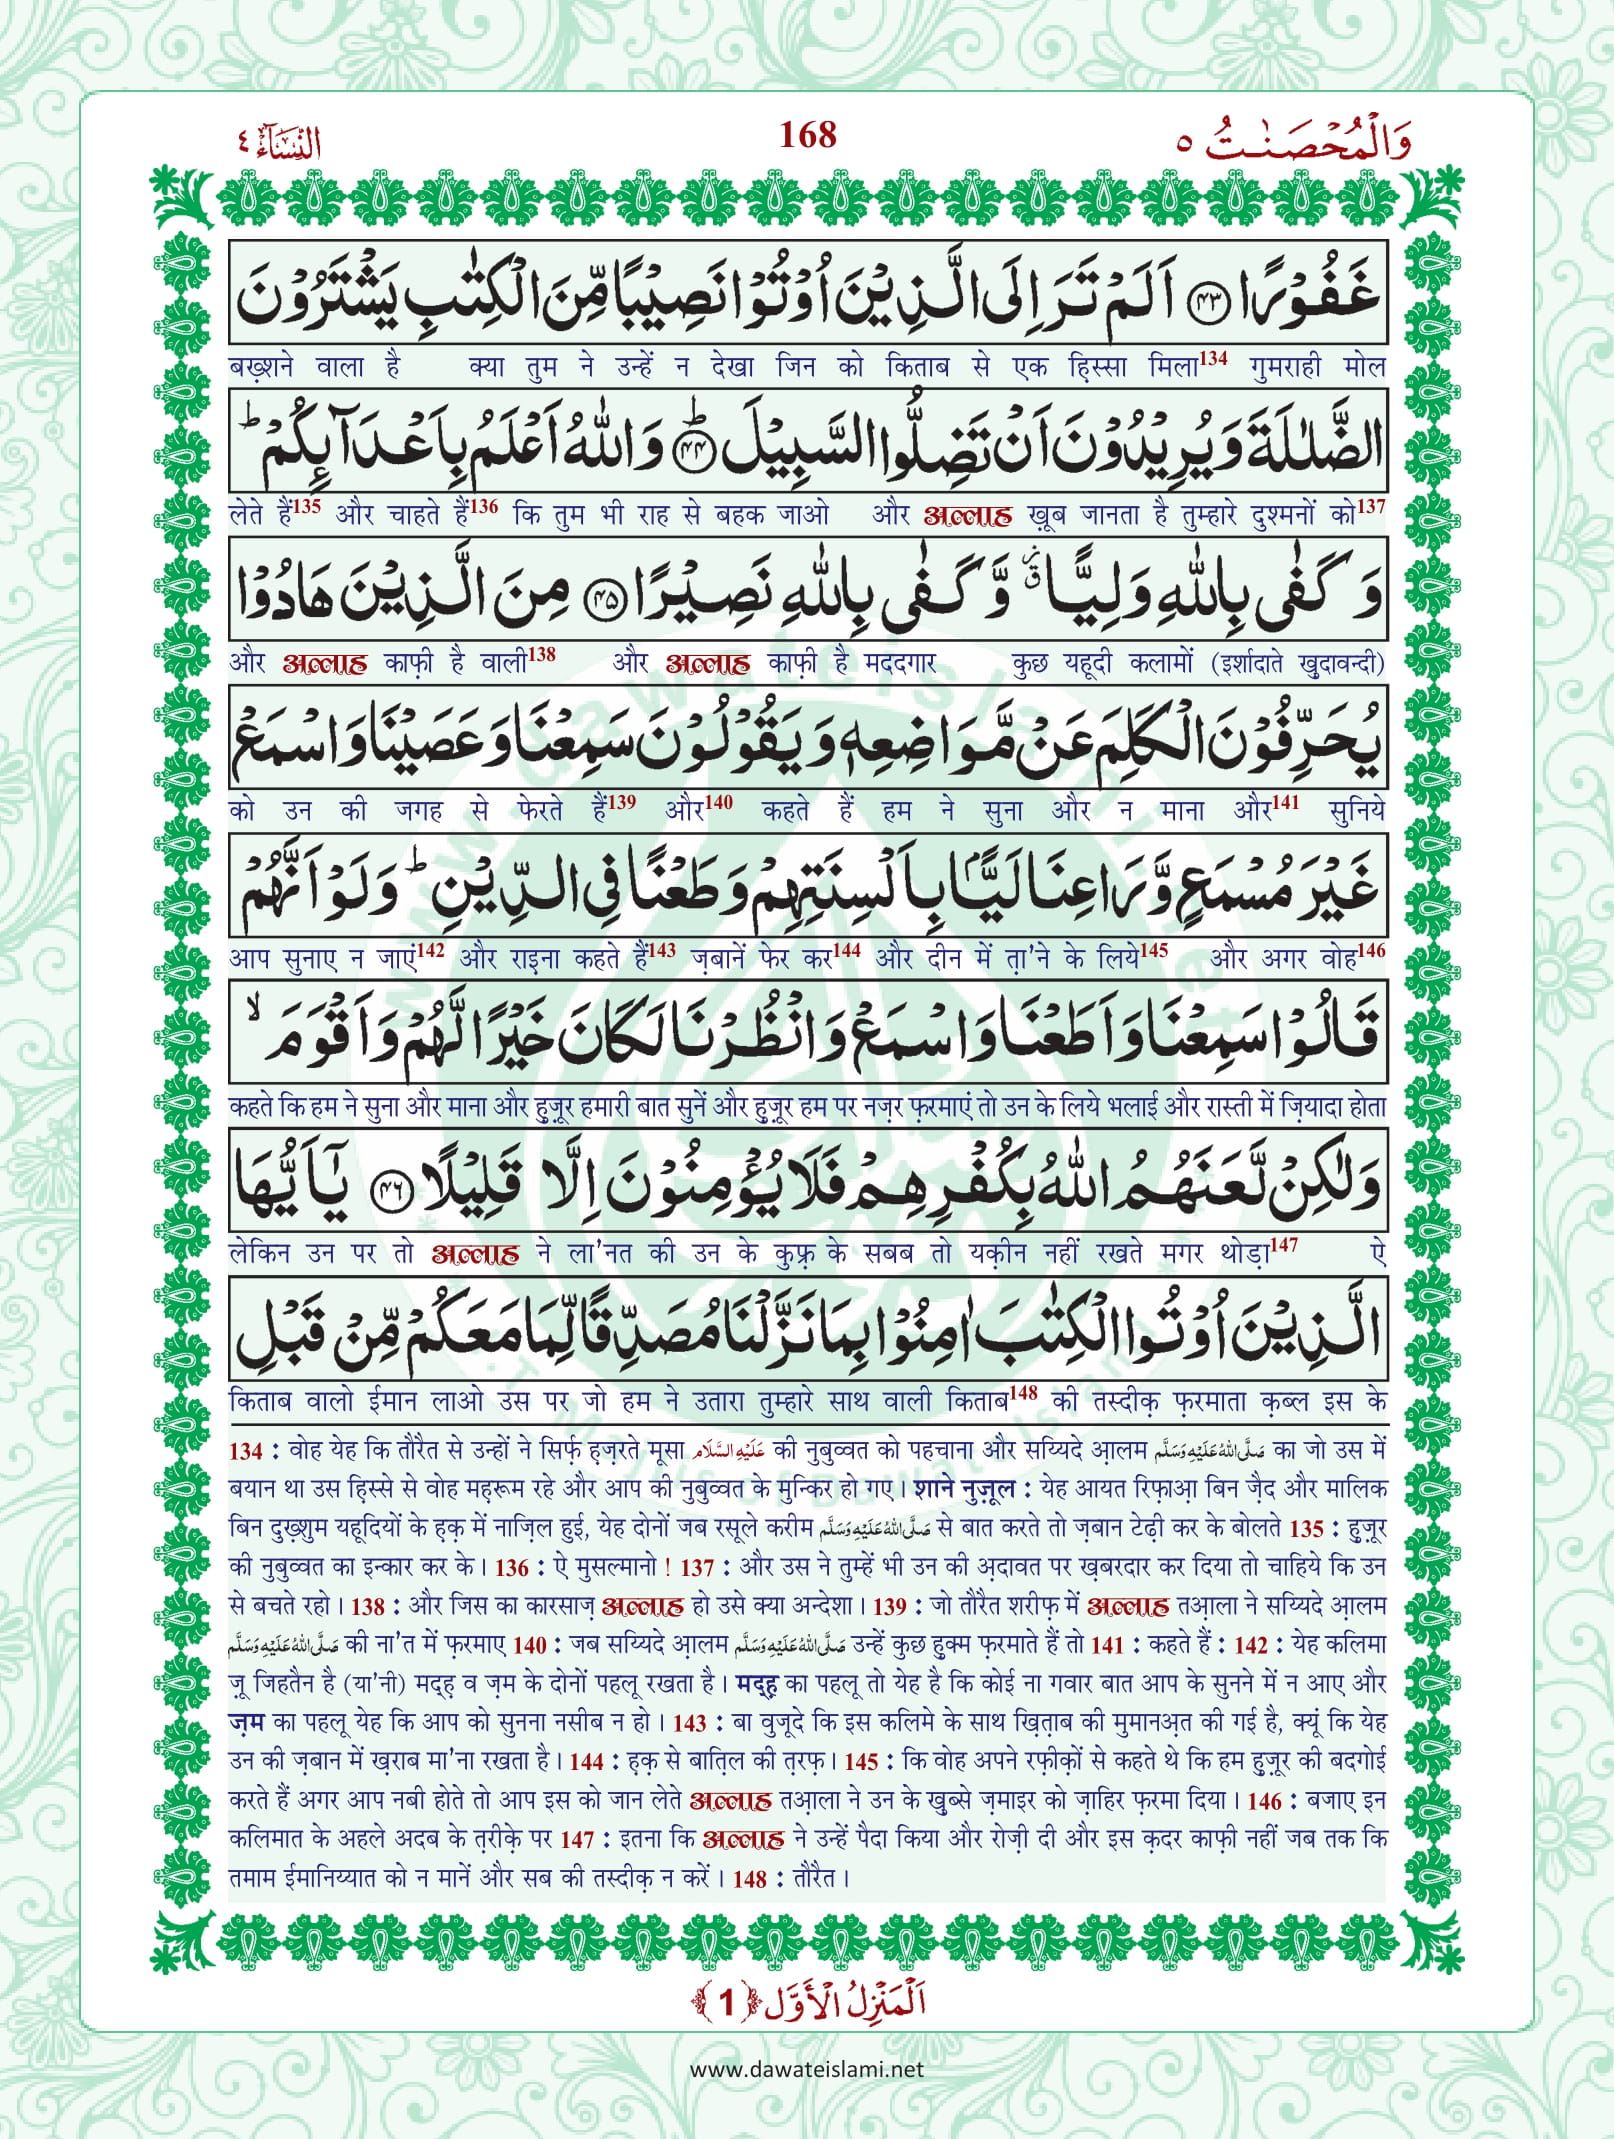 وَالْمُحْصَنٰتُ ٥ 168 النِّسَآء ٤
غَفُوْرًا ﴿۴۳﴾ اَلَمْ تَرَ اِلَى الَّذِیْنَ اُوْتُوْا نَصِیْبًا مِّنَ الْكِتٰبِ یَشْتَرُوْنَ
बख़्शने वाला है क्या तुम ने उन्हें न देखा जिन को किताब से एक हि़स्सा मिला134 गुमराही मोल
الضَّلٰلَةَ وَ یُرِیْدُوْنَ اَنْ تَضِلُّوا السَّبِیْلَ ﴿ؕ۴۴﴾ وَ اللّٰهُ اَعْلَمُ بِاَعْدَآىٕكُمْ ؕ
लेते हैं135 और चाहते हैं136 कि तुम भी राह से बहक जाओ और अल्लाह ख़ूब जानता है तुम्हारे दुश्मनों को137
وَ كَفٰى بِاللّٰهِ وَلِیًّا ٘ۗ وَّ كَفٰى بِاللّٰهِ نَصِیْرًا ﴿۴۵﴾ مِنَ الَّذِیْنَ هَادُوْا
और अल्लाह काफ़ी है वाली138 और अल्लाह काफ़ी है मददगार कुछ यहूदी कलामों (इर्शादाते खुदावन्दी)
یُحَرِّفُوْنَ الْكَلِمَ عَنْ مَّوَاضِعِهٖ وَ یَقُوْلُوْنَ سَمِعْنَا وَ عَصَیْنَا وَ اسْمَعْ
को उन की जगह से फेरते हैं139 और140 कहते हैं हम ने सुना और न माना और141 सुनिये
غَیْرَ مُسْمَعٍ وَّ رَاعِنَا لَیًّۢا بِاَلْسِنَتِهِمْ وَ طَعْنًا فِی الدِّیْنِ ؕ وَ لَوْ اَنَّهُمْ
आप सुनाए न जाएं142 और राइना कहते हैं143 ज़बानें फेर कर144 और दीन में त़ा'ने के लिये145 और अगर वोह146
قَالُوْا سَمِعْنَا وَ اَطَعْنَا وَ اسْمَعْ وَ انْظُرْنَا لَكَانَ خَیْرًا لَّهُمْ وَ اَقْوَمَ ۙ
कहते कि हम ने सुना और माना और हुज़ूर हमारी बात सुनें और हुज़ूर हम पर नज़र फ़रमाएं तो उन के लिये भलाई और रास्ती में ज़ियादा होता
وَ لٰكِنْ لَّعَنَهُمُ اللّٰهُ بِكُفْرِهِمْ فَلَا یُؤْمِنُوْنَ اِلَّا قَلِیْلًا ﴿۴۶﴾ یٰۤاَیُّهَا
लेकिन उन पर तो अल्लाह ने ला'नत की उन के कुफ़्र के सबब तो यक़ीन नहीं रखते मगर थोड़ा147 ऐ
الَّذِیْنَ اُوْتُوا الْكِتٰبَ اٰمِنُوْا بِمَا نَزَّلْنَا مُصَدِّقًا لِّمَا مَعَكُمْ مِّنْ قَبْلِ
किताब वालो ईमान लाओ उस पर जो हम ने उतारा तुम्हारे साथ वाली किताब148 की तस्दीक़ फ़रमाता क़ब्ल इस के
134 : वोह येह कि तौरैत से उन्हों ने सिर्फ़ ह़ज़रते मूसा عَلَيْهِ السَّلَام की नुबुव्वत को पहचाना और सय्यिदे आ़लम صَلَّى اللهُ عَلَيْهِ وَسَلَّم का जो उस में
बयान था उस हिस्से से वोह मह़रूम रहे और आप की नुबुव्वत के मुन्किर हो गए। शाने नुज़ूल : येह आयत रिफ़ाआ़ बिन ज़ैद और मालिक
बिन दुख़्शुम यहूदियों के ह़क़ में नाज़िल हुई, येह दोनों जब रसूले करीम صَلَّى اللهُ عَلَيْهِ وَسَلَّم से बात करते तो ज़बान टेढ़ी कर के बोलते 135 : हुज़ूर
की नुबुव्वत का इन्कार कर के। 136 : ऐ मुसल्मानो ! 137 : और उस ने तुम्हें भी उन की अ़दावत पर ख़बरदार कर दिया तो चाहिये कि उन
से बचते रहो। 138 : और जिस का कारसाज़ अल्लाह हो उसे क्या अन्देशा। 139 : जो तौरैत शरीफ़ में अल्लाह तआ़ला ने सय्यिदे आ़लम
صَلَّى اللهُ عَلَيْهِ وَسَلَّم की ना'त में फ़रमाए 140 : जब सय्यिदे आ़लम صَلَّى اللهُ عَلَيْهِ وَسَلَّم उन्हें कुछ हुक्म फ़रमाते हैं तो 141 : कहते हैं : 142 : येह कलिमा
ज़ू जिहतैन है (या'नी) मद्ह़ व ज़म के दोनों पहलू रखता है। मद्ह़ का पहलू तो येह है कि कोई ना गवार बात आप के सुनने में न आए और
ज़म का पहलू येह कि आप को सुनना नसीब न हो। 143 : बा वुजूदे कि इस कलिमे के साथ ख़ित़ाब की मुमानअ़त की गई है, क्यूं कि येह
उन की ज़बान में ख़राब मा'ना रखता है। 144 : ह़क़ से बात़िल की त़रफ़। 145 : कि वोह अपने रफ़ीक़ों से कहते थे कि हम हुज़ूर की बदगोई
करते हैं अगर आप नबी होते तो आप इस को जान लेते अल्लाह तआ़ला ने उन के खुब्से ज़माइर को ज़ाहिर फ़रमा दिया। 146 : बजाए इन
कलिमात के अहले अदब के त़रीक़े पर 147 : इतना कि अल्लाह ने उन्हें पैदा किया और रोज़ी दी और इस क़दर काफ़ी नहीं जब तक कि
तमाम ईमानिय्यात को न मानें और सब की तस्दीक़ न करें। 148 : तौरैत।
اَلْمَنْزِلُ الْاَوَّل ﴿1﴾
www.dawateislami.net